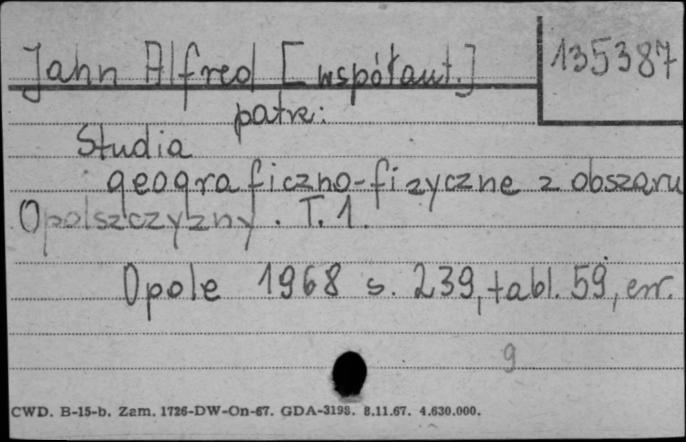 Jahn Alfred [współaut.]
135387
patrz:
Studia
geograficzno-fizyczne z obszaru
Opolszczyzny. T. 1.
Opole 1968 s. 239, tabl. 59, err.
9
CWD. B-15-b. Zam. 1726-DW-On-67. GDA-3198. 8.11.67. 4.630.000.